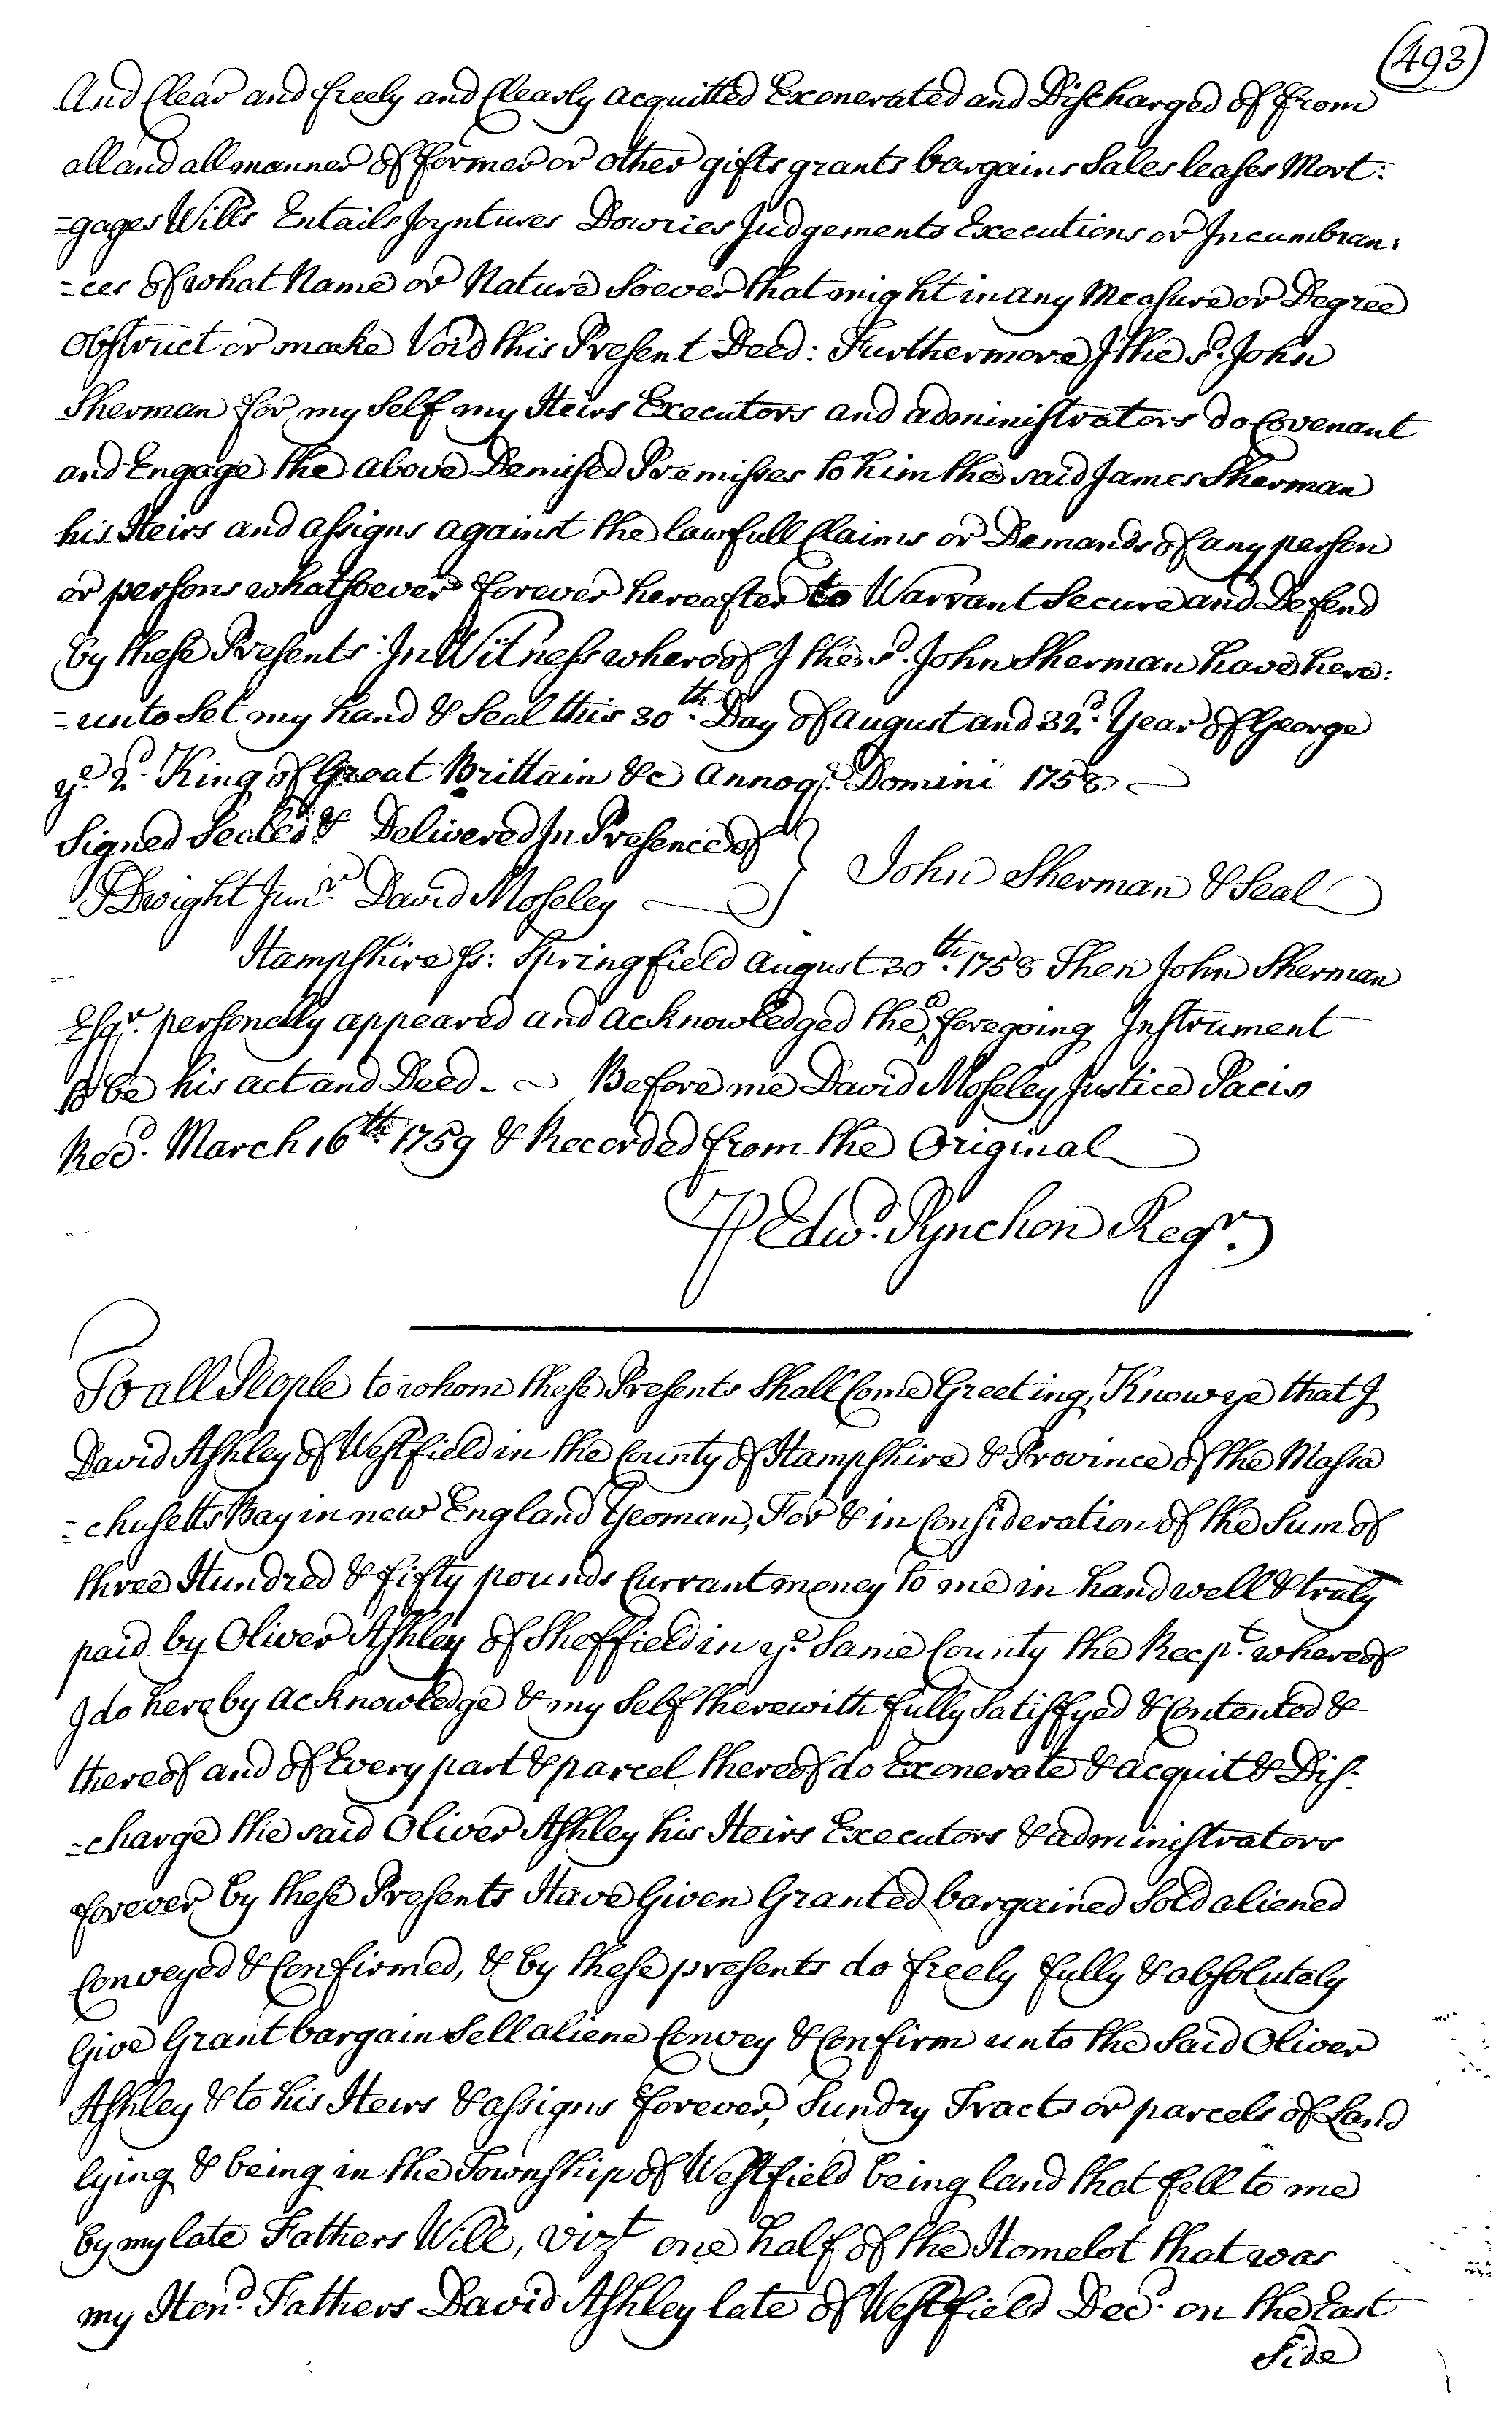 (493)
And Clear and freely and Clearly acquitted Exonerated and Discharged of from
all and all manner of former or other gifts grants bargains Sales leases Mort:
-gages Wills Entails Joyntures Dowries Judgements Executions or Incumbran:
-ces of what Name or Nature Soever that might in any Measure or Degree
Obstruct or make Void this Present Deed: Furthermore I the sd. John
Sherman for my Self my Heirs Executors and administrators do Covenant
and Engage the above Demised Premisses to him the said James Sherman
his Heirs and assigns against the lawfull Claims or Demands of any person
or persons whatsoever forever hereafter to Warrant Secure and Defend
by these Presents: In Witness whereof I the sd. John Sherman have here:
-unto Set my hand & Seal this 30th. Day of August and 32d. Year of George
ye. 2d. King of Great Brittain &c Annoqe. Domini 1758
Signed Sealed & Delivered In Presence of
J Dwight Junr. David Moseley } John Sherman & Seal
Hampshire ss: Springfield August 30th. 1758 Then John Sherman
Esqr. personally appeared and acknowledged the foregoing Instrument
to be his act and Deed. Before me David Moseley Justice Pacis
Recd. March 16th. 1759 & Recorded from the Original
P Edwd. Pynchon Regr.
To all People to whom these Presents Shall Come Greeting, Know ye that I
David Ashley of Westfield in the County of Hampshire & Province of the Massa
-chusetts Bay in new England Yeoman, For & in Consideration of the Sum of
three Hundred & fifty pounds Currant money to me in hand well & truly
paid by Oliver Ashley of Sheffield in ye. Same County the Recpt. whereof
I do hereby acknowledge & my Self therewith fully Satisfyed & Contented &
thereof and of Every part & parcel thereof do Exonerate & acquit & Dis:
-charge the said Oliver Ashley his Heirs Executors & administrators
forever by these Presents Have Given Granted bargained Sold aliened
Conveyed & Confirmed, & by these presents do freely fully & absolutely
Give Grant bargain Sell aliene Convey & Confirm unto the Said Oliver
Ashley & to his Heirs & assigns forever, Sundry Tracts or parcels of Land
lying & being in the Township of Westfield being land that fell to me
by my late Fathers Will, vizt one half of the Homelot that was
my Hond. Fathers David Ashley late of Westfield Decd. on the East
Side